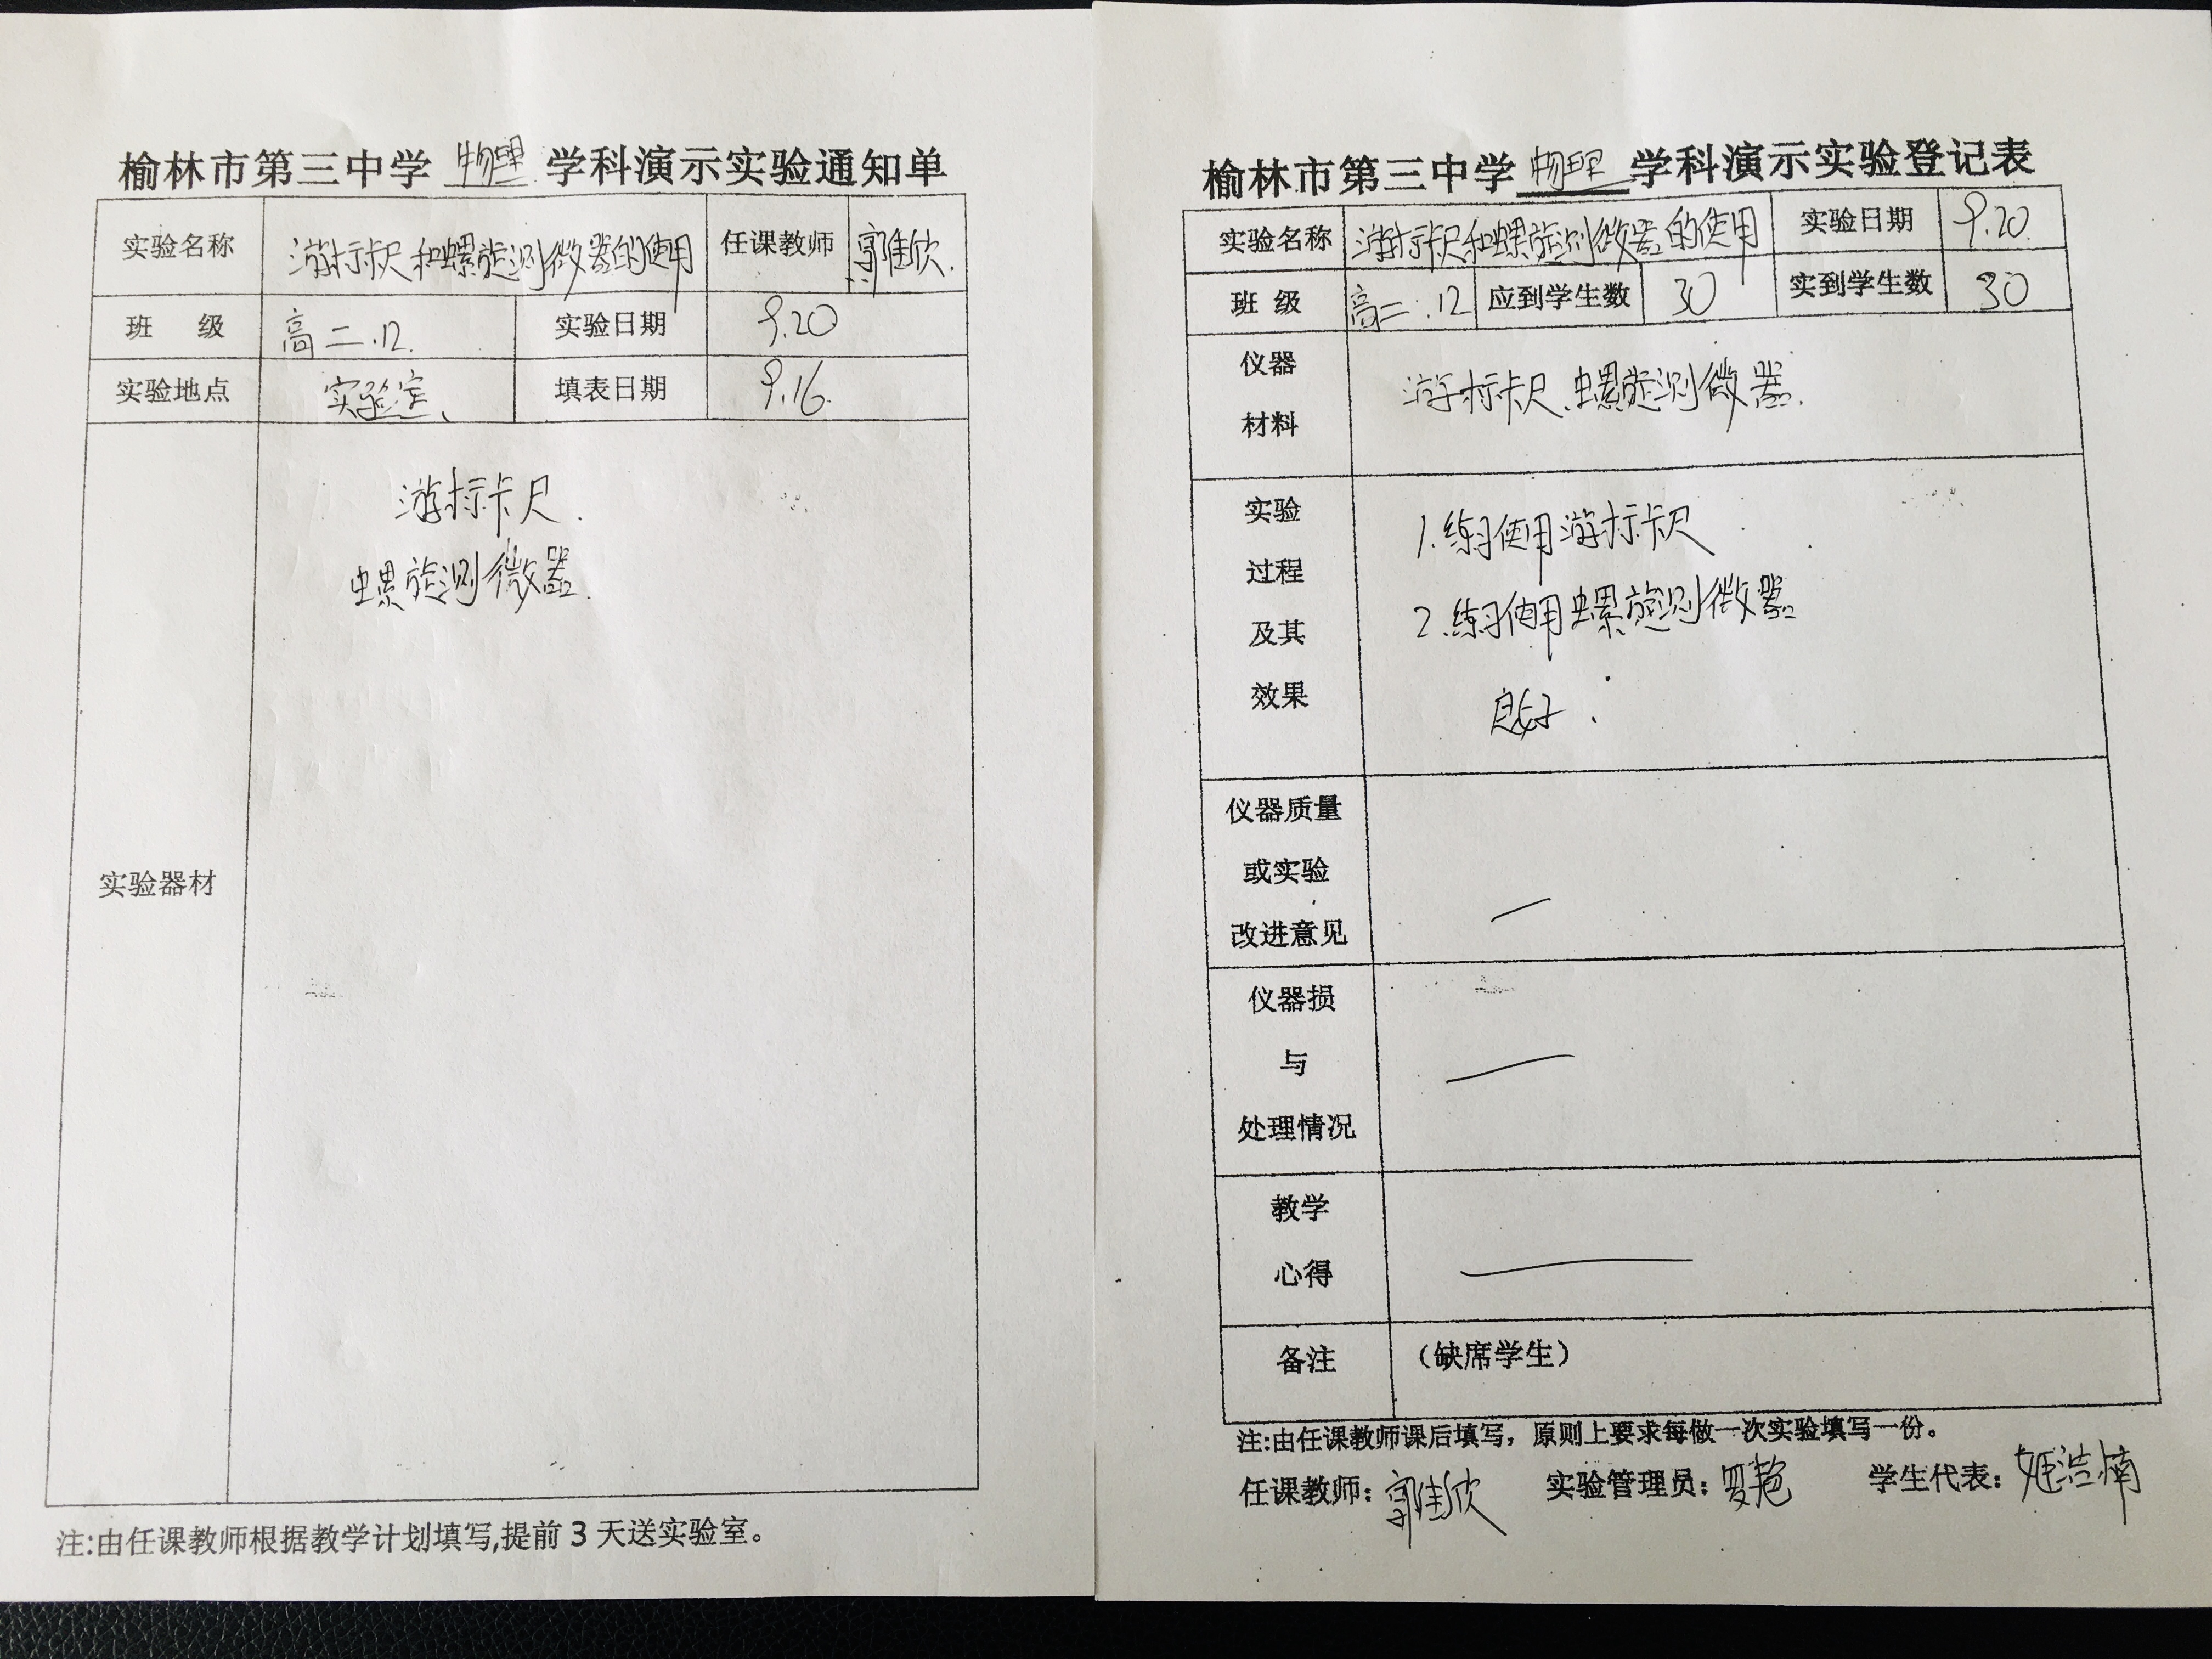 榆林市第三中学 物理 学科演示实验通知单
实验名称 游标卡尺和螺旋测微器的使用 任课教师 郭佳欣.
班 级 高二.12. 实验日期 9.20
实验地点 实验室、 填表日期 9.16.
实验器材
游标卡尺.
螺旋测微器.
注:由任课教师根据教学计划填写,提前 3 天送实验室。
榆林市第三中学 物理 学科演示实验登记表
实验名称 游标卡尺和螺旋测微器的使用 实验日期 9.20.
班 级 高二.12 应到学生数 30 实到学生数 30
仪器
材料
游标卡尺、螺旋测微器.
实验
过程
及其
效果
1.练习使用游标卡尺
2.练习使用螺旋测微器
良好.
仪器质量
或实验
改进意见
—
仪器损
与
处理情况
—
教学
心得
—
备注 （缺席学生）
注:由任课教师课后填写，原则上要求每做一次实验填写一份。
任课教师: 郭佳欣 实验管理员: 罗艳 学生代表: 姬浩楠